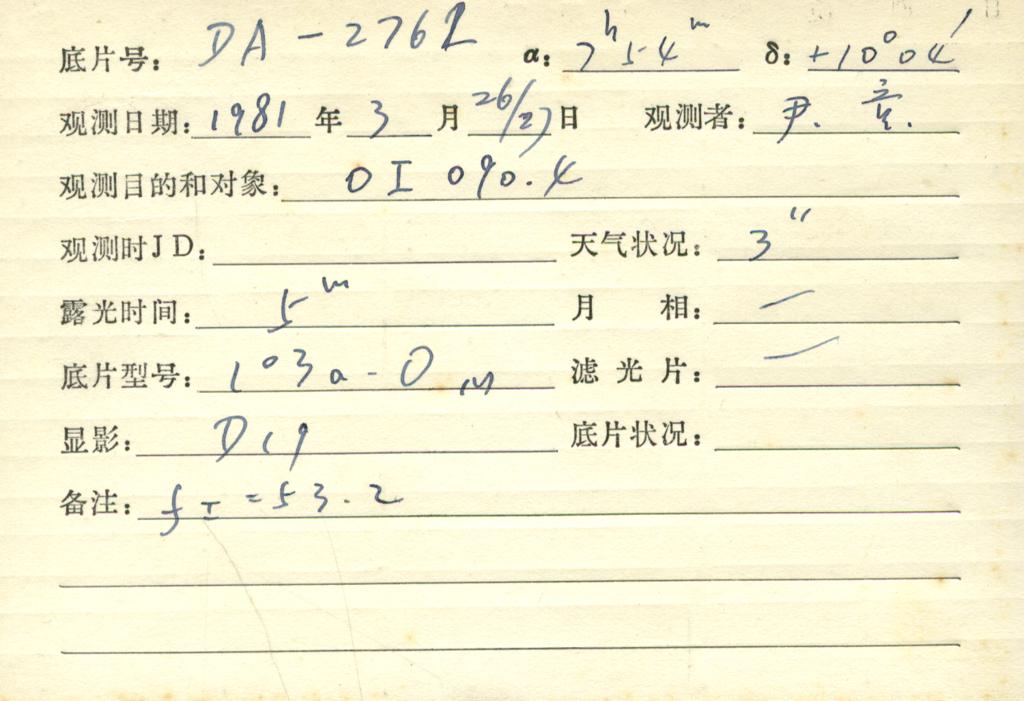 底片号: DA-2762 α: 7ʰ54ᵐ δ: +10°04′
观测日期: 1981 年 3 月 26/27 日 观测者: 尹. 童.
观测目的和对象: OI 090.4
观测时JD: 天气状况: 3″
露光时间: 5ᵐ 月 相: —
底片型号: 103a-O 滤光片: —
显影: D19 底片状况:
备注: f_I = 53.2